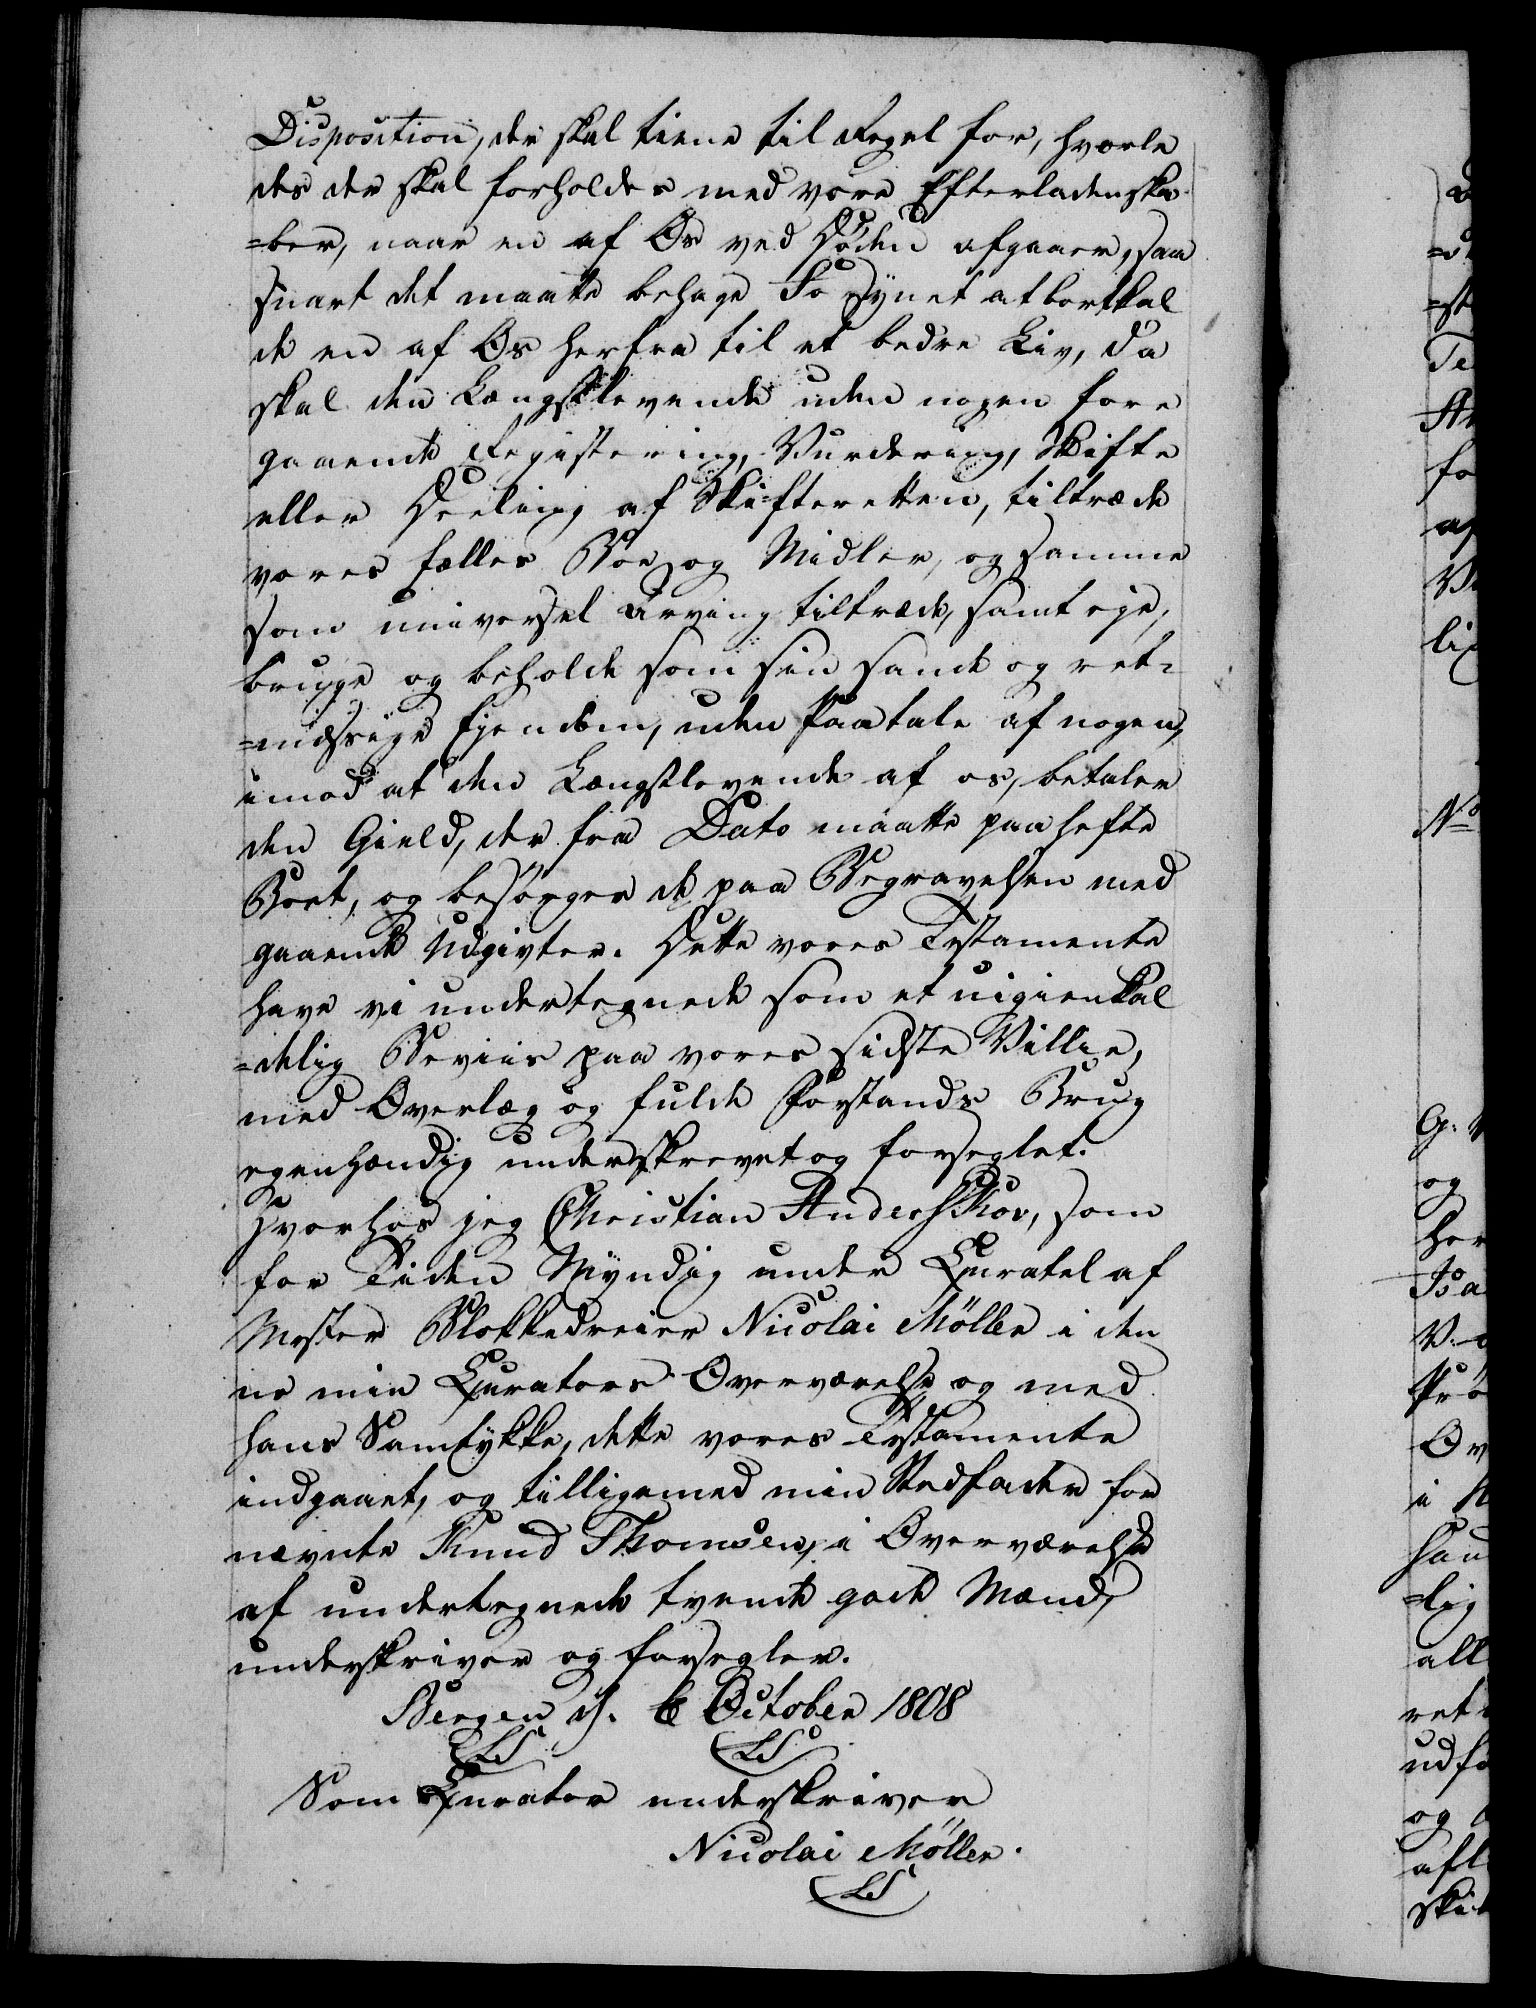 Disposition, der skal tiene til Regel for, hvorle
des der skal forholdes med vore Efterladenska
=ber, naar en af Os ved Døden afgaaer, saa
snart det maatte behage Fosÿnet at bortkal
de en af Os herfra til et bedre Liv, da
skal den Længstlevende uden nogen fore
gaaende Registering, Vurdering, Skifte
eller Deeling af Skifteretten, tiltræde
vores fælles Boe og Midler, og samme
som universel Arving tiltræde, samt eje,
bruge og beholde som sin sande og ret=
=mæssige Ejendom, uden Paatale af nogen,
imod at den Længstlevende af os, betaler
den Gield, der fra Dato maatte paahefte
Boet, og besørger de paa Begravelsen med
gaaende Udgivter. Dette vores Testamente
have vi undertegnede som et uigienkal
=delig Beviis paa vores sidste Villie,
med Overlæg og fulde Forstands Brug
egenhændig underskrevet og forseglet.
Hvorhos jeg Christian Anderskov, som
for Tiden Mÿndig under Curatel af
Mester Blokkedreier Nicolai Möller i den
ne min Curators Overværelse og med
hans Samtykke, dette vores Testamente
indgaaet, og tilligemed min Stedfader for
nævnte Knud Thomsen, i Overværelse
af undertegnede tvende gode Mænd,
underskriver og forsegler.
Bergen d. 6 October 1808
LS LS
Som Curator underskriver
Nicolai Möller.
LS